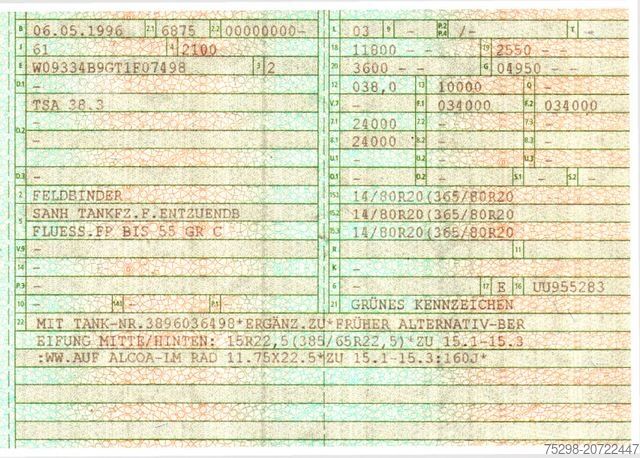 B 06.05.1996 2.1 6875 2.2 00000000-
J 61 4 2100
E W09334B9GT1F07498 3 2
D.1 -
TSA 38.3
D.2 -
-
D.3 -
2 FELDBINDER
SANH TANKFZ.F.ENTZUENDB
5 FLUESS.FP BIS 55 GR C
V.9 -
14 -
P.3 -
10 - 14.1 - P.1 -
L 03 9 - P.2 P.4 /- T -
18 11800 - - 19 2550 - -
20 3600 - - G 04950 - -
12 038,0 13 10000 Q -
V.7 - F.1 034000 F.2 034000
7.1 24000 7.2 - 7.3 -
8.1 24000 8.2 - 8.3 -
U.1 - U.2 - U.3 -
O.1 - O.2 - S.1 - S.2 -
15.1 14/80R20(365/80R20
15.2 14/80R20(365/80R20
15.3 14/80R20(365/80R20
R - 11 -
K -
6 - 17 E 16 UU955283
21 GRÜNES KENNZEICHEN
22 MIT TANK-NR.3896036498*ERGÄNZ.ZU*FRÜHER ALTERNATIV-BER
EIFUNG MITTE/HINTEN: 15R22,5(385/65R22,5)*ZU 15.1-15.3
:WW.AUF ALCOA-LM RAD 11.75X22.5*ZU 15.1-15.3:160J*
75298-20722447